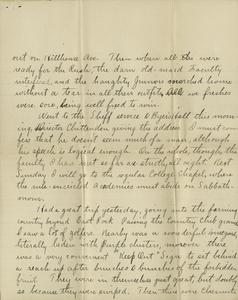 out on Hillhouse Ave. Then when all the were
ready for the Rush, the stern old-maid Faculty
interfered, and the haughty Juniors marched home
without a tear in all their outfits. All we freshies
were sore, being well fired to win.
Went to the Sheff service to Byers Hall this mor-
ning, Director Chittenden giving the address. I must con-
fess that he doesn't seem much of a man, although
his speech is logical enough. On the whole, though, the
faculty I has met so far as strictly all right. Next
Sunday I will go to the regular College Chapel, where
the rule-encircled Academics must abide on Sabbath-
morns.
Had a great trip yesterday, going into the farming
country beyond East Rock. Passing the Country Club grounds
I saw a lot of golfers. Nearby was a wonderful vineyard
literally laden with purple clusters, moreover there
was a very convenient "Keep Out" Sign to set behind
a reach up after bunches & bunches of the forbidden
fruit. They were in themselves just great, but doubly
so because they were swiped. Then there were chestnuts